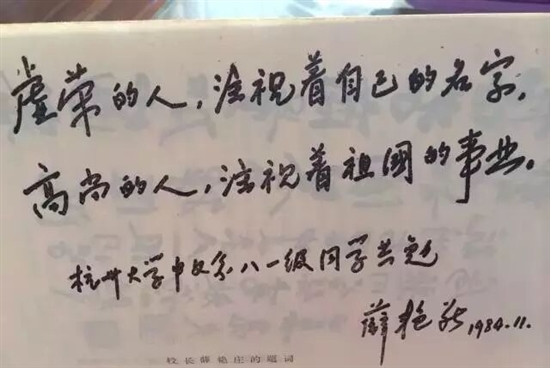 虚荣的人,注视着自己的名字,
高尚的人,注视着祖国的事业。
杭州大学中文系八一级同学共勉
薛艳庄 1984.11.
校长薛艳庄的题词